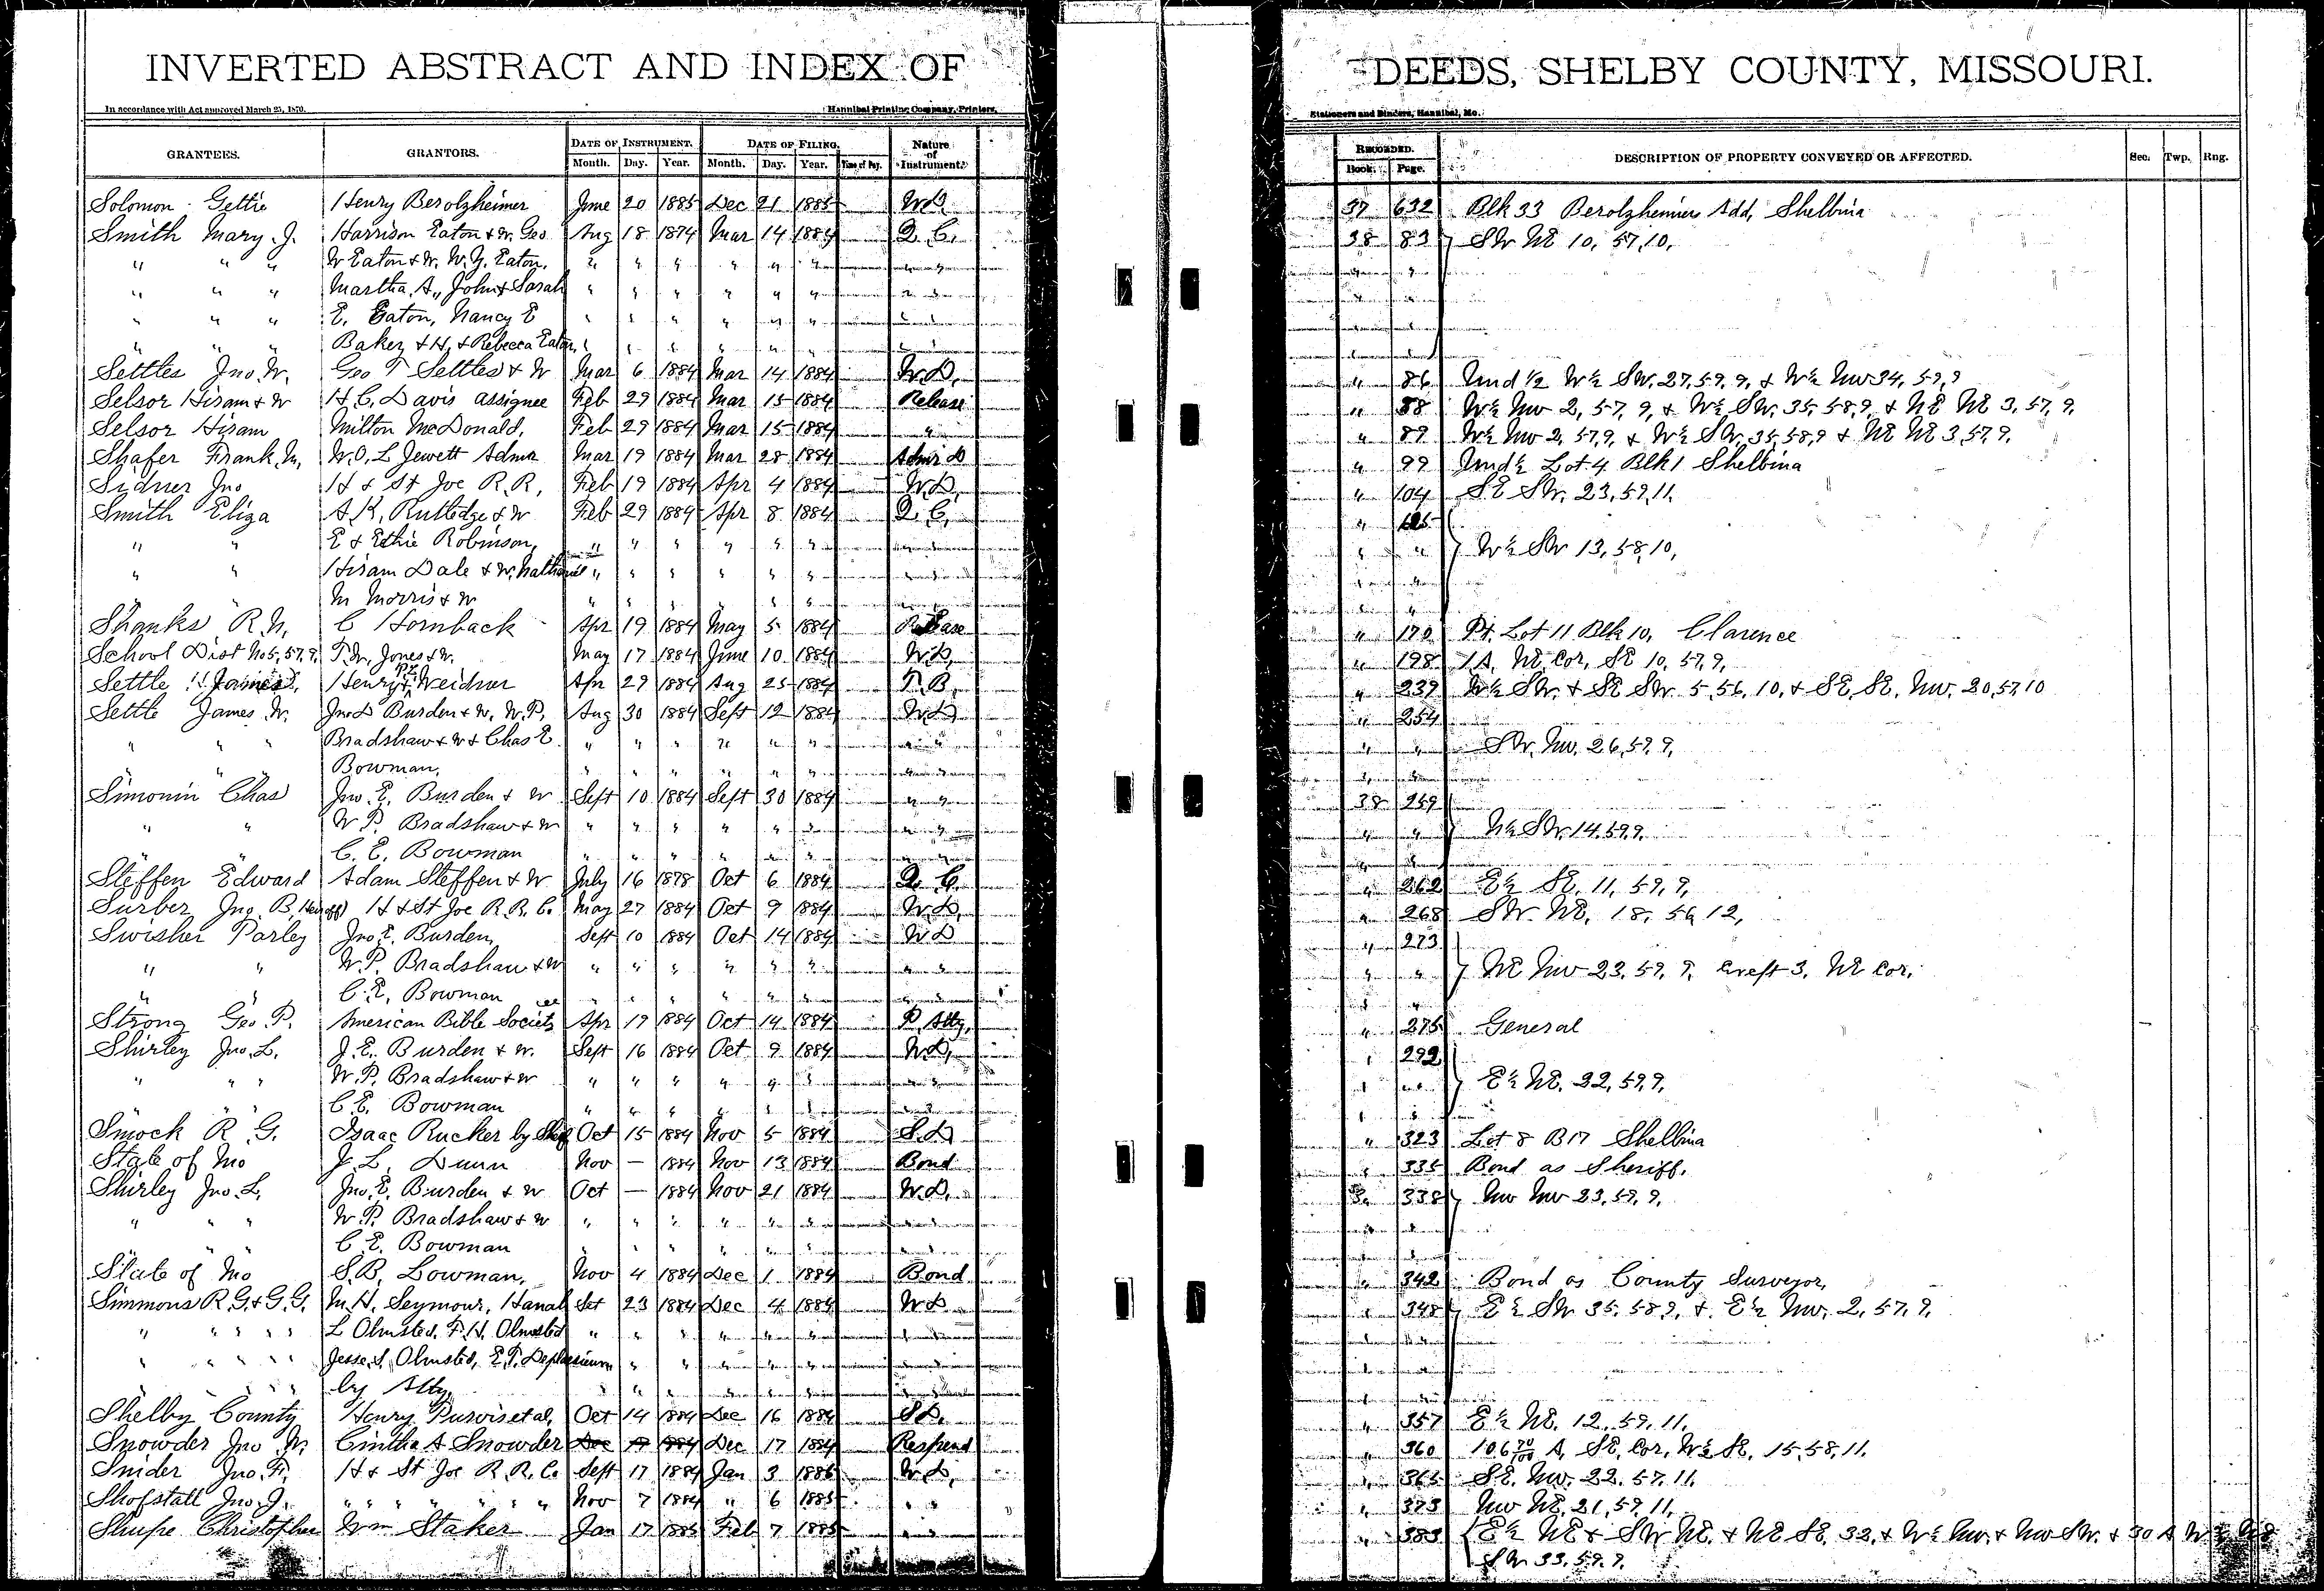 INVERTED ABSTRACT AND INDEX OF DEEDS, SHELBY COUNTY, MISSOURI.
In accordance with Act approved March 25, 1870. Hannibal Printing Company, Printers, Stationers and Binders, Hannibal, Mo.
GRANTEES. GRANTORS. DATE OF INSTRUMENT. DATE OF FILING. Nature of Instrument. RECORDED. DESCRIPTION OF PROPERTY CONVEYED OR AFFECTED. Sec. Twp. Rng.
Month. Day. Year. Month. Day. Year. Book. Page.
Solomon Gettie Henry Berolzheimer June 20 1885 Dec 21 1885 W.D. 37 632 Blk 33 Berolzheimers Add, Shelbina
Smith Mary J. Harrison Eaton & W. Geo Aug 18 1874 Mar 14 1884 Q.C. 38 83 } SW NE 10, 57, 10,
" " " W Eaton & W. W.Y. Eaton, " " " " " " " " " "
" " " Martha A., John & Sarah " " " " " " " " " "
" " " E. Eaton, Nancy E " " " " " " " " " "
" " " Baker & H. & Rebecca Eaton, " " " " " " " " " "
Settles Jno. W. Geo T Settles & W Mar 6 1884 Mar 14 1884 W.D. " 86 Und 1/2 W½ SW. 27, 59, 9, & W½ NW 34, 59, 9
Selsor Hiram & W H.C. Davis assignee Feb 29 1884 Mar 15 1884 Release " 88 W½ NW 2, 57, 9, & W½ SW. 35, 58, 9, & NE NE 3, 57, 9,
Selsor Hiram Milton McDonald, Feb 29 1884 Mar 15 1884 " " 89 W½ NW 2, 57, 9, & W½ SW. 35, 58, 9 & NE NE 3, 57, 9,
Shafer Frank M. W.O.L Jewett Admr Mar 19 1884 Mar 28 1884 Admr D " 99 Und ½ Lot 4 Blk 1 Shelbina
Sidner Jno H & St Joe R.R. Feb 19 1884 Apr 4 1884 W.D. " 104 SE SW. 23, 59, 11,
Smith Eliza A.K. Rutledge & W Feb 29 1884 Apr 8 1884 Q.C. "
" " E & Ethie Robinson, " " " " " " " " " " } W½ SW 13, 58, 10,
" " Hiram Dale & W. " " " " " " " " " "
" " M Morris & W " " " " " " " " " "
Shanks R.N. C Hornback Apr 19 1884 May 5 1884 Release " 170 Pt. Lot 11 Blk 10, Clarence
School Dist No 5, 57, 9, T.W. Jones & W. May 17 1884 June 10 1884 W.D. " 198 1 A, NE Cor, SE 10, 57, 9,
Settle James Henry Weidner Apr 29 1884 Aug 25 1884 T.B. " 239 W½ SW. & SE SW 5, 56, 10, & SE, SE, NW. 20, 57, 10
Settle James W. Jno D Burden & W. W.P. Aug 30 1884 Sept 12 1884 W.D " 254
" " " Bradshaw & W & Chas E. " " " " " " " " " " SW. NW. 26, 59, 9,
" " " Bowman, " " " " " " " " " "
Simonin Chas Jno. E. Burden & W Sept 10 1884 Sept 30 1884 " " 38 259
" " W P. Bradshaw & W " " " " " " " " " " } N½ SW. 14, 59, 9.
" " C. E. Bowman " " " " " " " " " "
Steffen Edward Adam Steffen & W July 16 1878 Oct 6 1884 Q.C. " 262 E½ SE. 11, 59, 9,
Surber Jno. B. H & St Joe R.R.C. May 27 1884 Oct 9 1884 W.D. " 268 SW. NE, 18, 56, 12,
Swisher Parley Jno. E. Burden, Sept 10 1884 Oct 14 1884 W.D " 273
" " W.P. Bradshaw & W " " " " " " " " " " } NE NW 23, 59, 9, Except 3, NE Cor,
" " C.E. Bowman " " " " " " " " " "
Strong Geo. P. American Bible Society Apr 19 1884 Oct 14 1884 P. Atty. " 275 General
Shirley Jno. L. J.E. Burden & W. Sept 16 1884 Oct 9 1884 W.D. " 292
" " " W.P. Bradshaw & W " " " " " " " " " " } E½ NE. 22, 59, 9,
" " " C.E. Bowman " " " " " " " " " "
Smock R G. Isaac Rucker by Shff Oct 15 1884 Nov 5 1884 S.D " 323 Lot 8 B 17 Shelbina
State of Mo J L. Dunn Nov — 1884 Nov 13 1884 Bond " 335 Bond as Sheriff.
Shirley Jno. L. Jno. E. Burden & W Oct — 1884 Nov 21 1884 W.D. " 338 } NW NW 23, 59, 9,
" " " W.P. Bradshaw & W " " " " " " " " " "
" " " C E. Bowman " " " " " " " " " "
State of Mo S.B. Bowman, Nov 4 1884 Dec 1 1884 Bond " 342 Bond as County Surveyor,
Simmons R.G. & G.G. M.H. Seymour, Hanah Oct 23 1884 Dec 4 1884 W.D. " 348 } E½ SW 35, 58, 9, & E½ NW. 2, 57, 9,
" " " " L Olmsted, F.H. Olmsted " " " " " " " " " "
" " " " Jesse S. Olmsted, E.P. " " " " " " " " " "
" " " " by Atty. " " " " " " " " " "
Shelby County Henry Purvis et al, Oct 14 1884 Dec 16 1884 S.D. " 357 E½ NE. 12, 59, 11,
Snowder Jno W. Cintha A Snowder Dec 17 1884 Dec 17 1884 " 360 106 70/100 A, SE, Cor, W½ SE. 15, 58, 11.
Snider Jno. F. H & St Joe R.R. Co Sept 17 1884 Jan 3 1885 W.D. " 365 SE. NW. 22, 57, 11.
Shofstall Jno. J. " " " " " " " Nov 7 1884 " 6 1885 " " " 373 NW NE. 21, 59, 11,
Shupe Christopher Wm Staker Jan 17 1885 Feb 7 1885 " " " 383 { E½ NE & SW NE. & NE SE, 32, & W½ NW. & NW SW. & 30 A W½
SW 33, 59, 9,